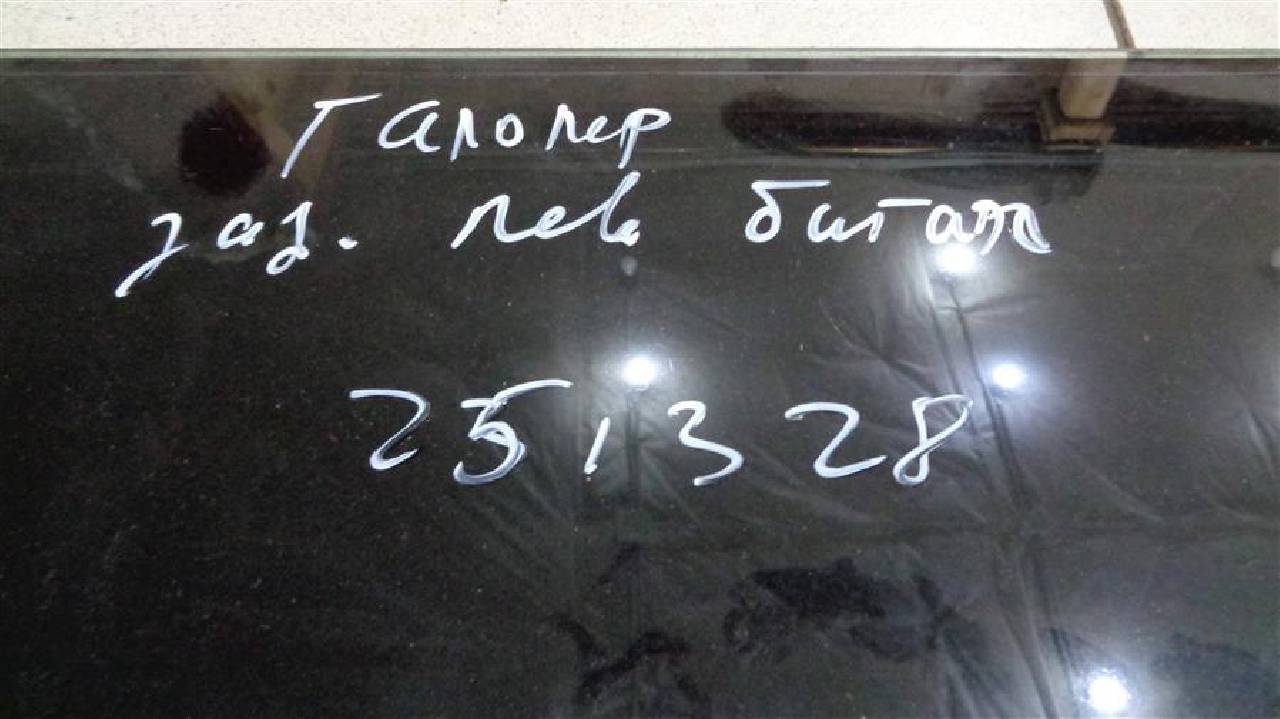 Галопер
зад. лев битая
251328